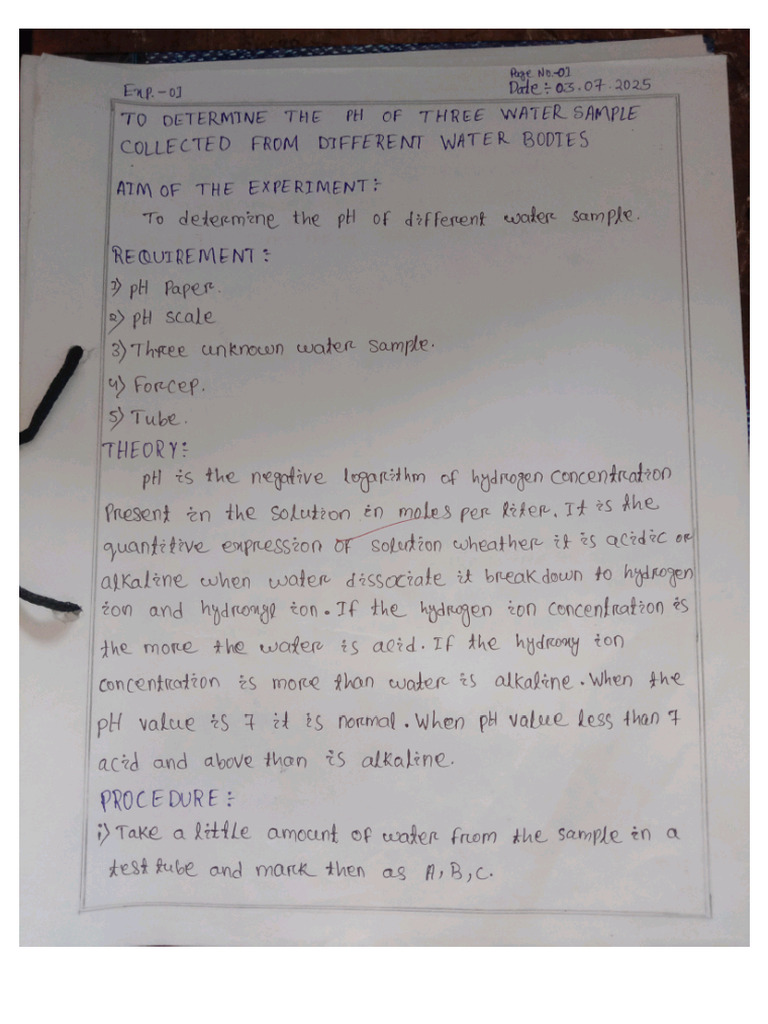 Exp.-01
Page No.-01
Date:- 03.07.2025
TO DETERMINE THE PH OF THREE WATER SAMPLE
COLLECTED FROM DIFFERENT WATER BODIES
AIM OF THE EXPERIMENT:-
To determine the pH of different water sample.
REQUIREMENT:-
1) pH Paper.
2) pH scale
3) Three unknown water sample.
4) Forcep.
5) Tube.
THEORY:-
pH is the negative logarithm of hydrogen concentration
Present in the solution in moles per liter. It is the
quantitive expression of solution wheather it is acidic or
alkaline when water dissociate it breakdown to hydrogen
ion and hydroxyl ion. If the hydrogen ion concentration is
the more the water is acid. If the hydroxy ion
concentration is more than water is alkaline. When the
pH value is 7 it is normal. When pH value less than 7
acid and above than is alkaline.
PROCEDURE:-
i) Take a little amount of water from the sample in a
test tube and mark then as A, B, C.